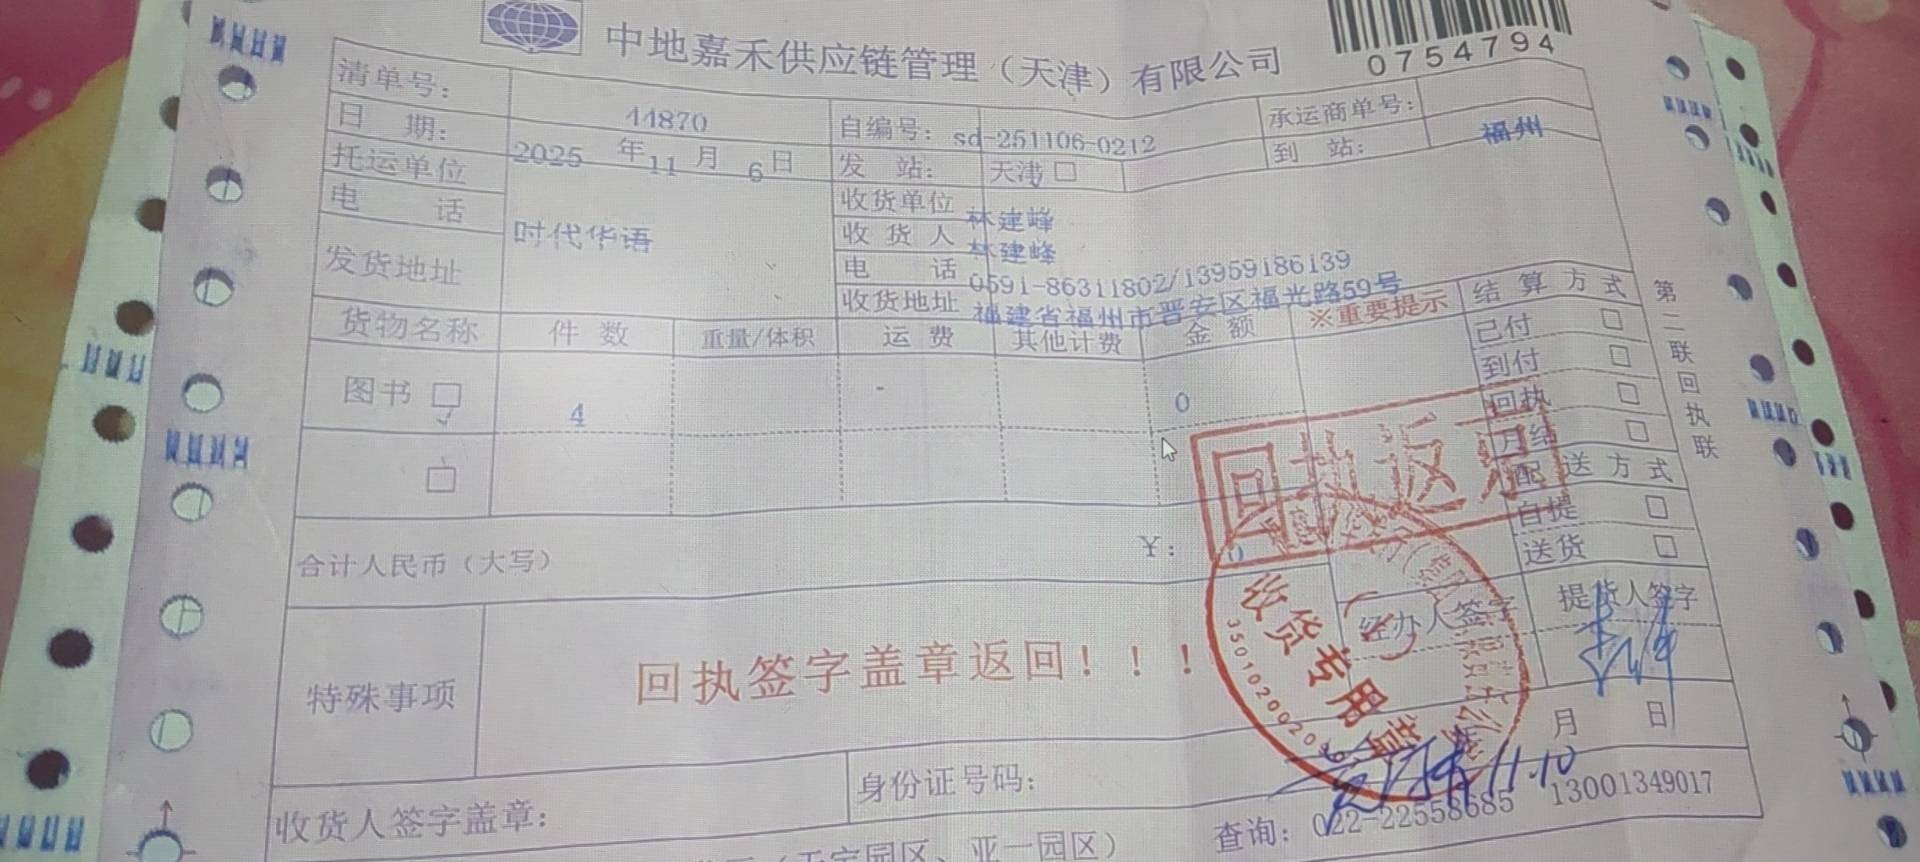 中地嘉禾供应链管理（天津）有限公司
0754794
清单号： 44870 自编号：sd-251106-0212 承运商单号：
日 期： 2025 年 11 月 6 日 发 站： 天津 □ 到 站： 福州
托运单位 时代华语 收货单位 林建峰
电 话 收 货 人 林建峰
发货地址 电 话 0591-86311802/13959186139
收货地址 福建省福州市晋安区福光路59号
货物名称 件 数 重量/体积 运 费 其他计费 金 额 ※重要提示 结 算 方 式
已付 □
图书 □ 4 - 0 到付 □
回执 □
月结 □
□ 配 送 方 式
自提 □
合计人民币（大写） ￥： 0 送货 □
回执返
第二联回执联
特殊事项 回执签字盖章返回！！！ 经办人签字 提货人签字
收货专用章
月 日
11.10
收货人签字盖章： 身份证号码：
查询：022-22558685 13001349017
园区、亚一园区）